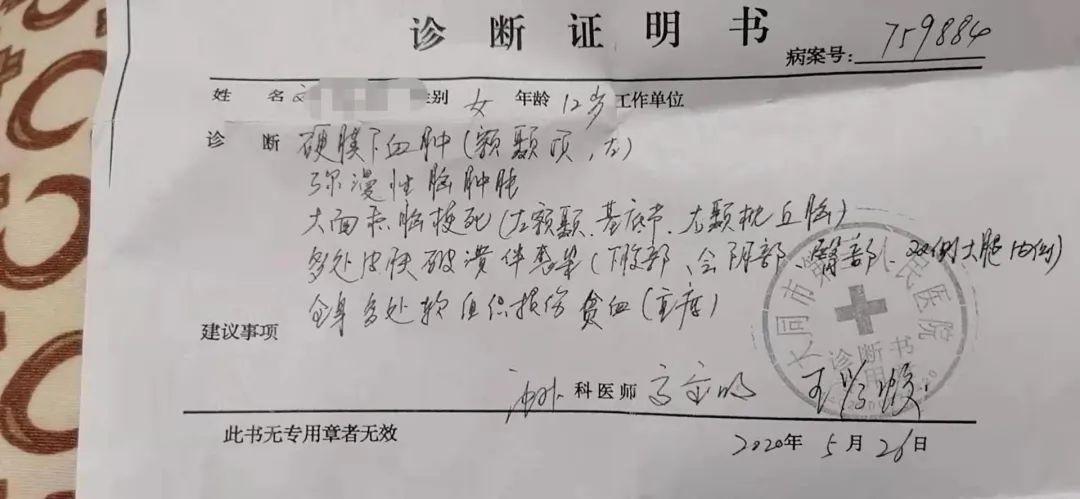 诊断证明书
病案号: 759884
姓 名 性别 女 年龄 12岁 工作单位
诊 断 硬膜下血肿(额颞顶,左)
弥漫性脑肿胀
大面积脑梗死(左额颞、基底节、右颞枕丘脑)
多处皮肤破溃伴感染(下腹部、会阴部、臀部、双侧大腿内侧)
全身多处软组织损伤 贫血(重度)
建议事项
大同市 人民医院
诊断书
专用章
科医师
此书无专用章者无效
2020年 5月 26日